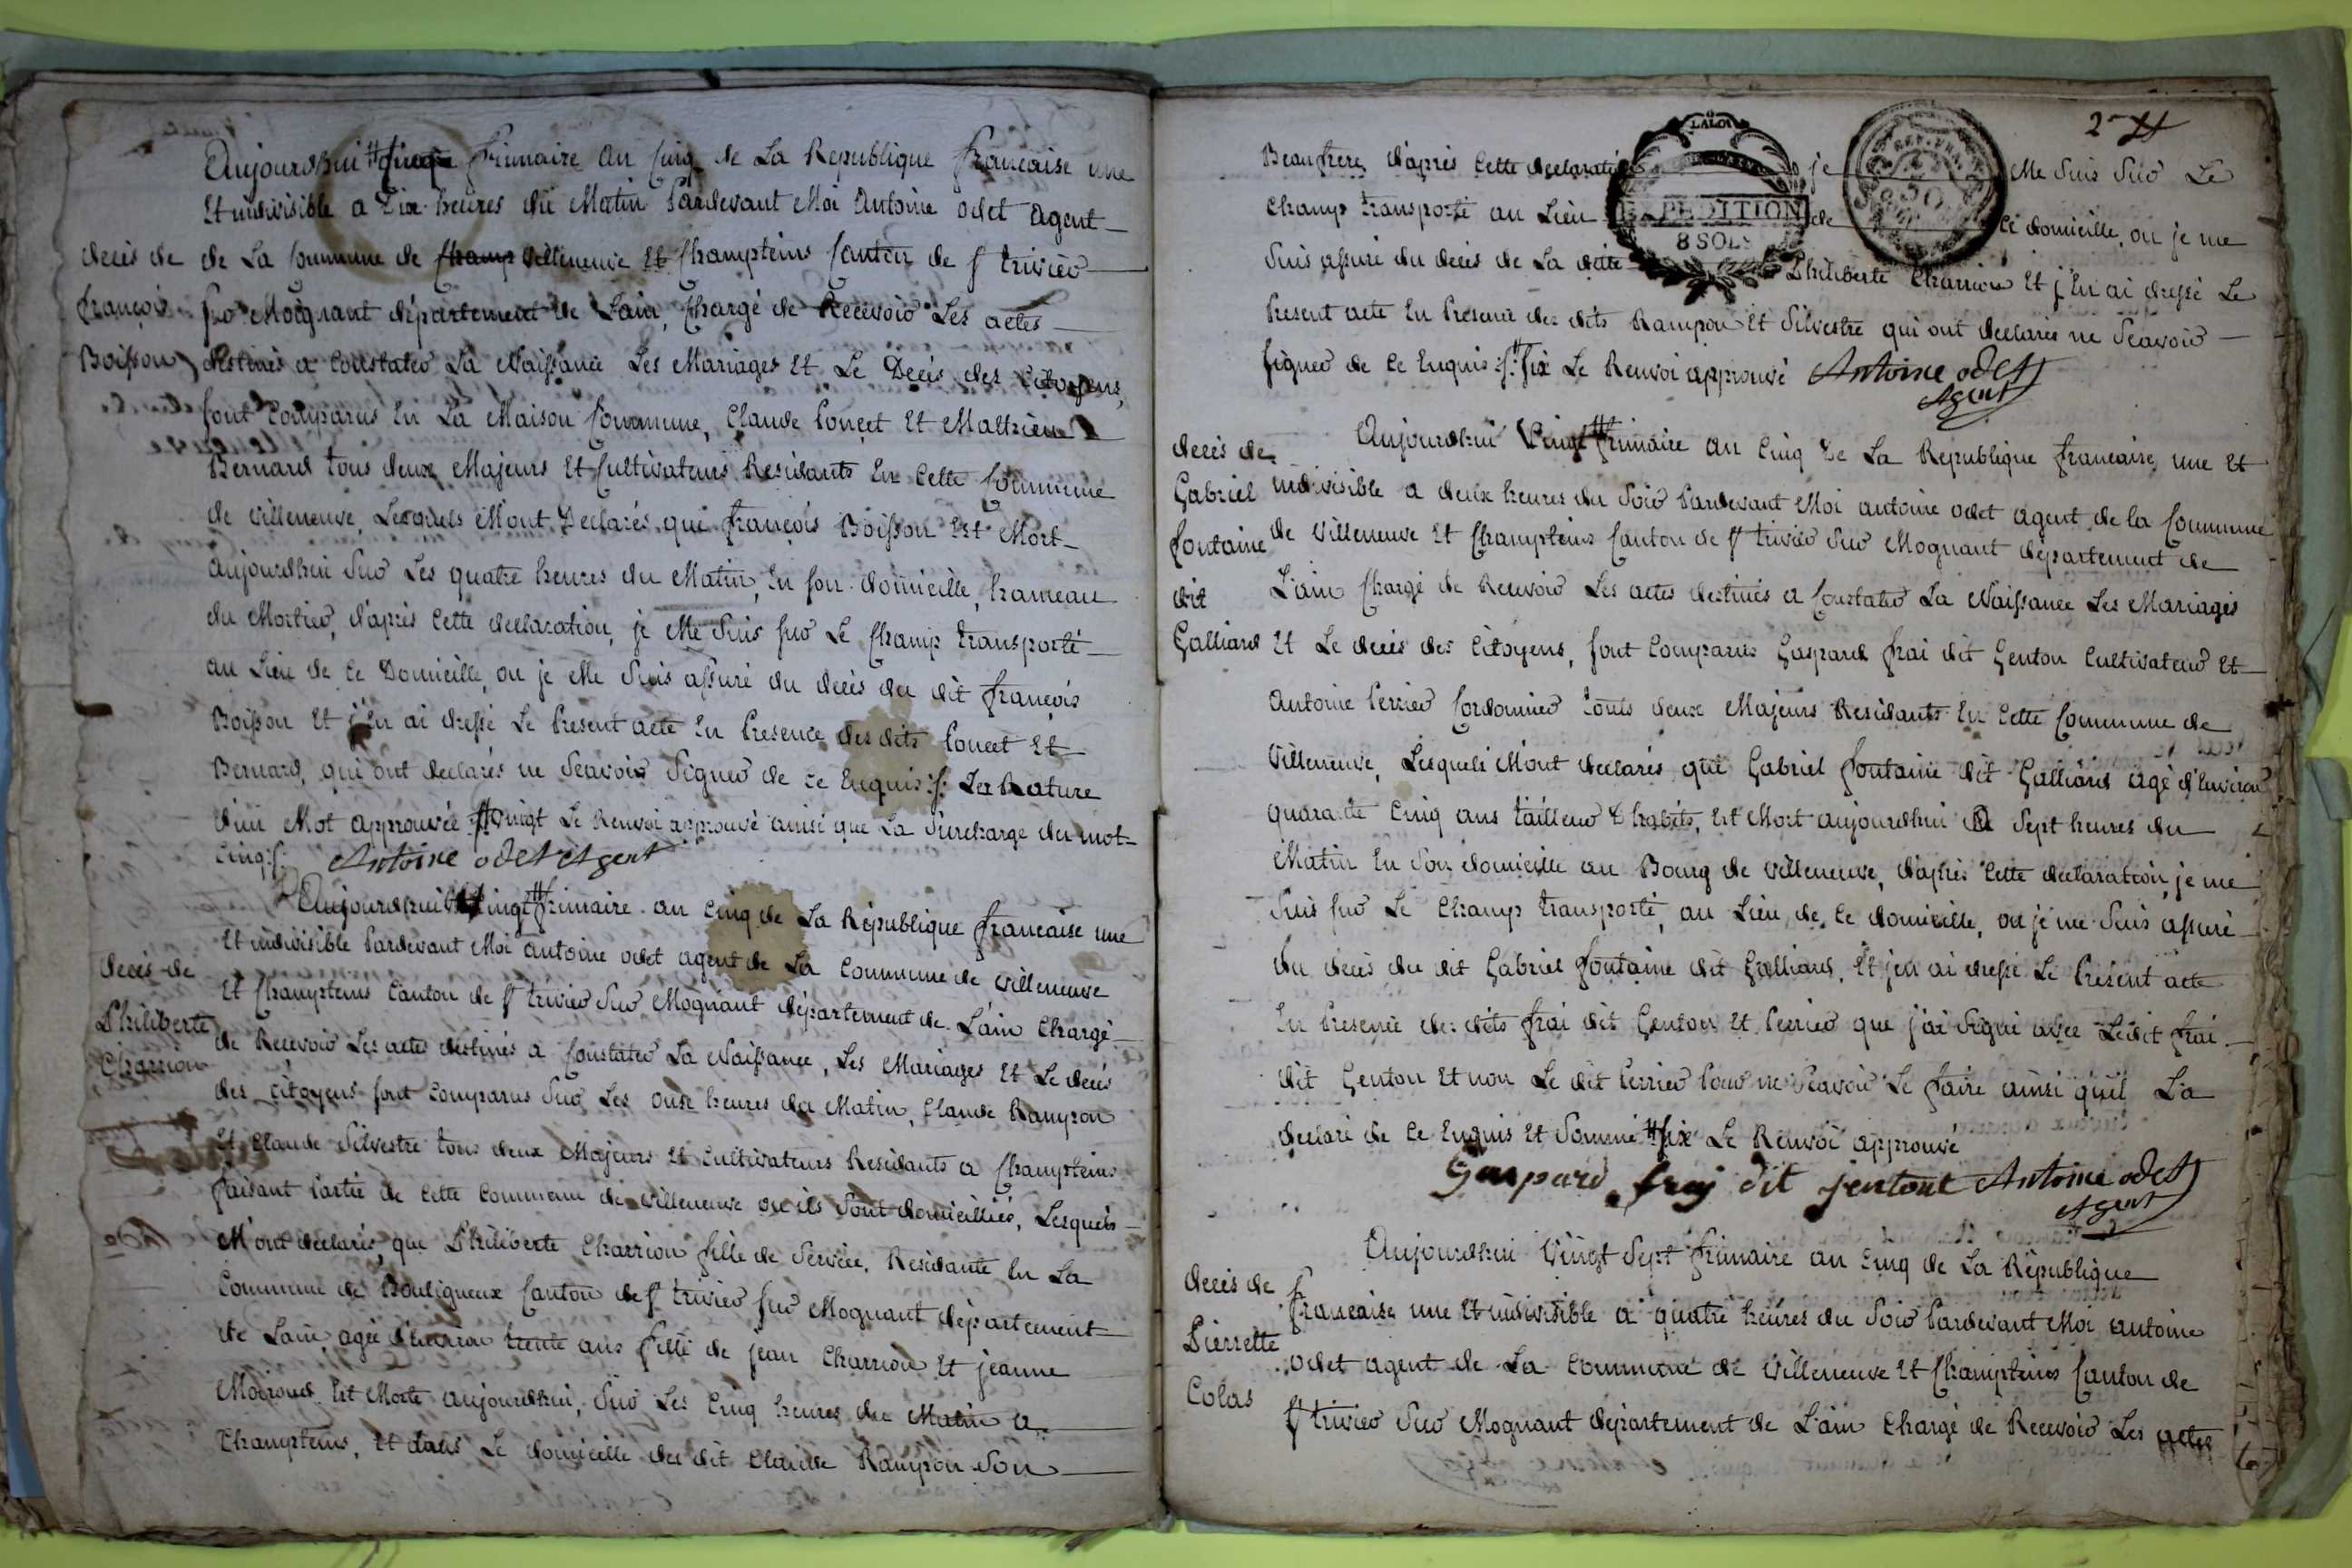 Aujourdhui # frimaire an cinq de La Republique francaise une
Et indivisible a dix heures du Matin Pardevant Moi Antoine odet agent
decès de
françois
Boisson
de La Commune de Champ villeneuve Et Champteins Canton de St trivier
sur Mognant département de Lain, Chargé de Recevoir Les actes
destinés a Constater La Naissance Les Mariages Et Le Decès des Citoyens,
sont Comparus En La Maison Commune, Claude Poncet Et Mathieu
Bernard tous deux Majeurs Et Cultivateurs Residants En Cette Commune
de villeneuve, Lesquels Mont Declarés que françois Boisson Est Mort
aujourdhui Sur Les quatre heures du Matin, En son domicille, hameau
du Mortier, d'après Cette declaration, je Me Suis sur Le Champ transporté
au Lieu de Ce Domicille, ou je Me Suis assuré du decès du dit françois
Boisson Et j'En ai dressé Le Present acte En Presence des dits Poncet Et
Bernard, qui ont declarés ne Scavoir Signer de Ce Enquis :/: La Rature
d'un Mot approuvée # vingt Le Renvoi approuvé ainsi que La Surcharge du mot
cinq :/: Antoine odet Agent
Aujourdhui vingt # frimaire an Cinq de La République francaise une
Et indivisible Pardevant Moi antoine odet agent de La Commune de villeneuve
decès de
Philiberte
Charrion
Et Champteins Canton de St trivier Sur Mognant département de L'ain Chargé
de Recevoir Les actes destinés a Constater La Naissance, Les Mariages Et Le decès
des Citoyens sont Comparus Sur Les onze heures du Matin, Claude Rampon
Et Claude Silvestre tous deux Majeurs Et Cultivateurs Residants a Champteins
faisant Partie de Cette Commune de villeneuve ou ils Sont domicilliés, Lesquels
M'ont declarés, que Philiberte Charrion fille de Service, Residante En La
Commune de Bouligneux Canton de St trivier sur Mognant département
de Lain, agée d'environ trente ans fille de jean Charrion Et jeanne
Est Morte aujourdhui, Sur Les Cinq heures du Matin a
Champteins, Et dans Le domicille du dit Claude Rampon Son
2
LALOI
EXPEDITION
8 SOLS
REP. FRA
50
Beaufrere, d'après Cette declaration je Me Suis Sur Le
Champ transporté au Lieu de Ce domicille, ou je me
Suis assuré du decès de La ditte Philiberte Charrion Et j'En ai dressé Le
Present acte En Presence des dits Rampon Et Silvestre qui ont declarés ne Scavoir
signer de Ce Enquis :/: # six Le Renvoi approuvé Antoine odet
Agent
decès de
Gabriel
fontaine
dit
Galliard
Aujourdhui Vingt # frimaire an Cinq de La Republique francaise, une Et
indivisible a deux heures du Soir Pardevant Moi antoine odet agent de la Commune
de villeneuve Et Champteins Canton de St trivier Sur Mognant département de
L'ain Chargé de Recevoir Les actes destinés a Constater La Naissance Les Mariages
Et Le decès des Citoyens, sont Comparus Gaspard frai dit Genton Cultivateur Et
antoine Perrier Cordonnier touts deux Majeurs Residants En Cette Commune de
villeneuve, Lesquels Mont declarés que Gabriel fontaine dit Galliard agé d'Environ
quarante Cinq ans tailleur d'habits, Est Mort aujourdhui a Sept heures du
Matin En Son domicille au Bourg de villeneuve, d'après Cette declaration, je me
Suis sur Le Champ transporté, au Lieu de Ce domicille, ou je me Suis assuré
du decès du dit Gabriel fontaine dit Galliard, Et jen ai dressé Le Present acte
En Presence des dits frai dit Genton Et Perrier que j'ai Signé avec Ledit frai
dit Genton Et non Le dit Perrier Pour ne Scavoir Le faire ainsi qu'il La
declaré de Ce Enquis Et Sommé # six Le Renvoi approuvé
Gaspard fraj dit jentont Antoine odet
Agent
decès de
Pierrette
Colas
Aujourdhui Vingt Sept frimaire an Cinq de La République
francaise une Et indivisible a quatre heures du Soir Pardevant Moi antoine
odet agent de La Commune de villeneuve Et Champteins Canton de
St trivier Sur Mognant département de L'ain Chargé de Recevoir Les actes